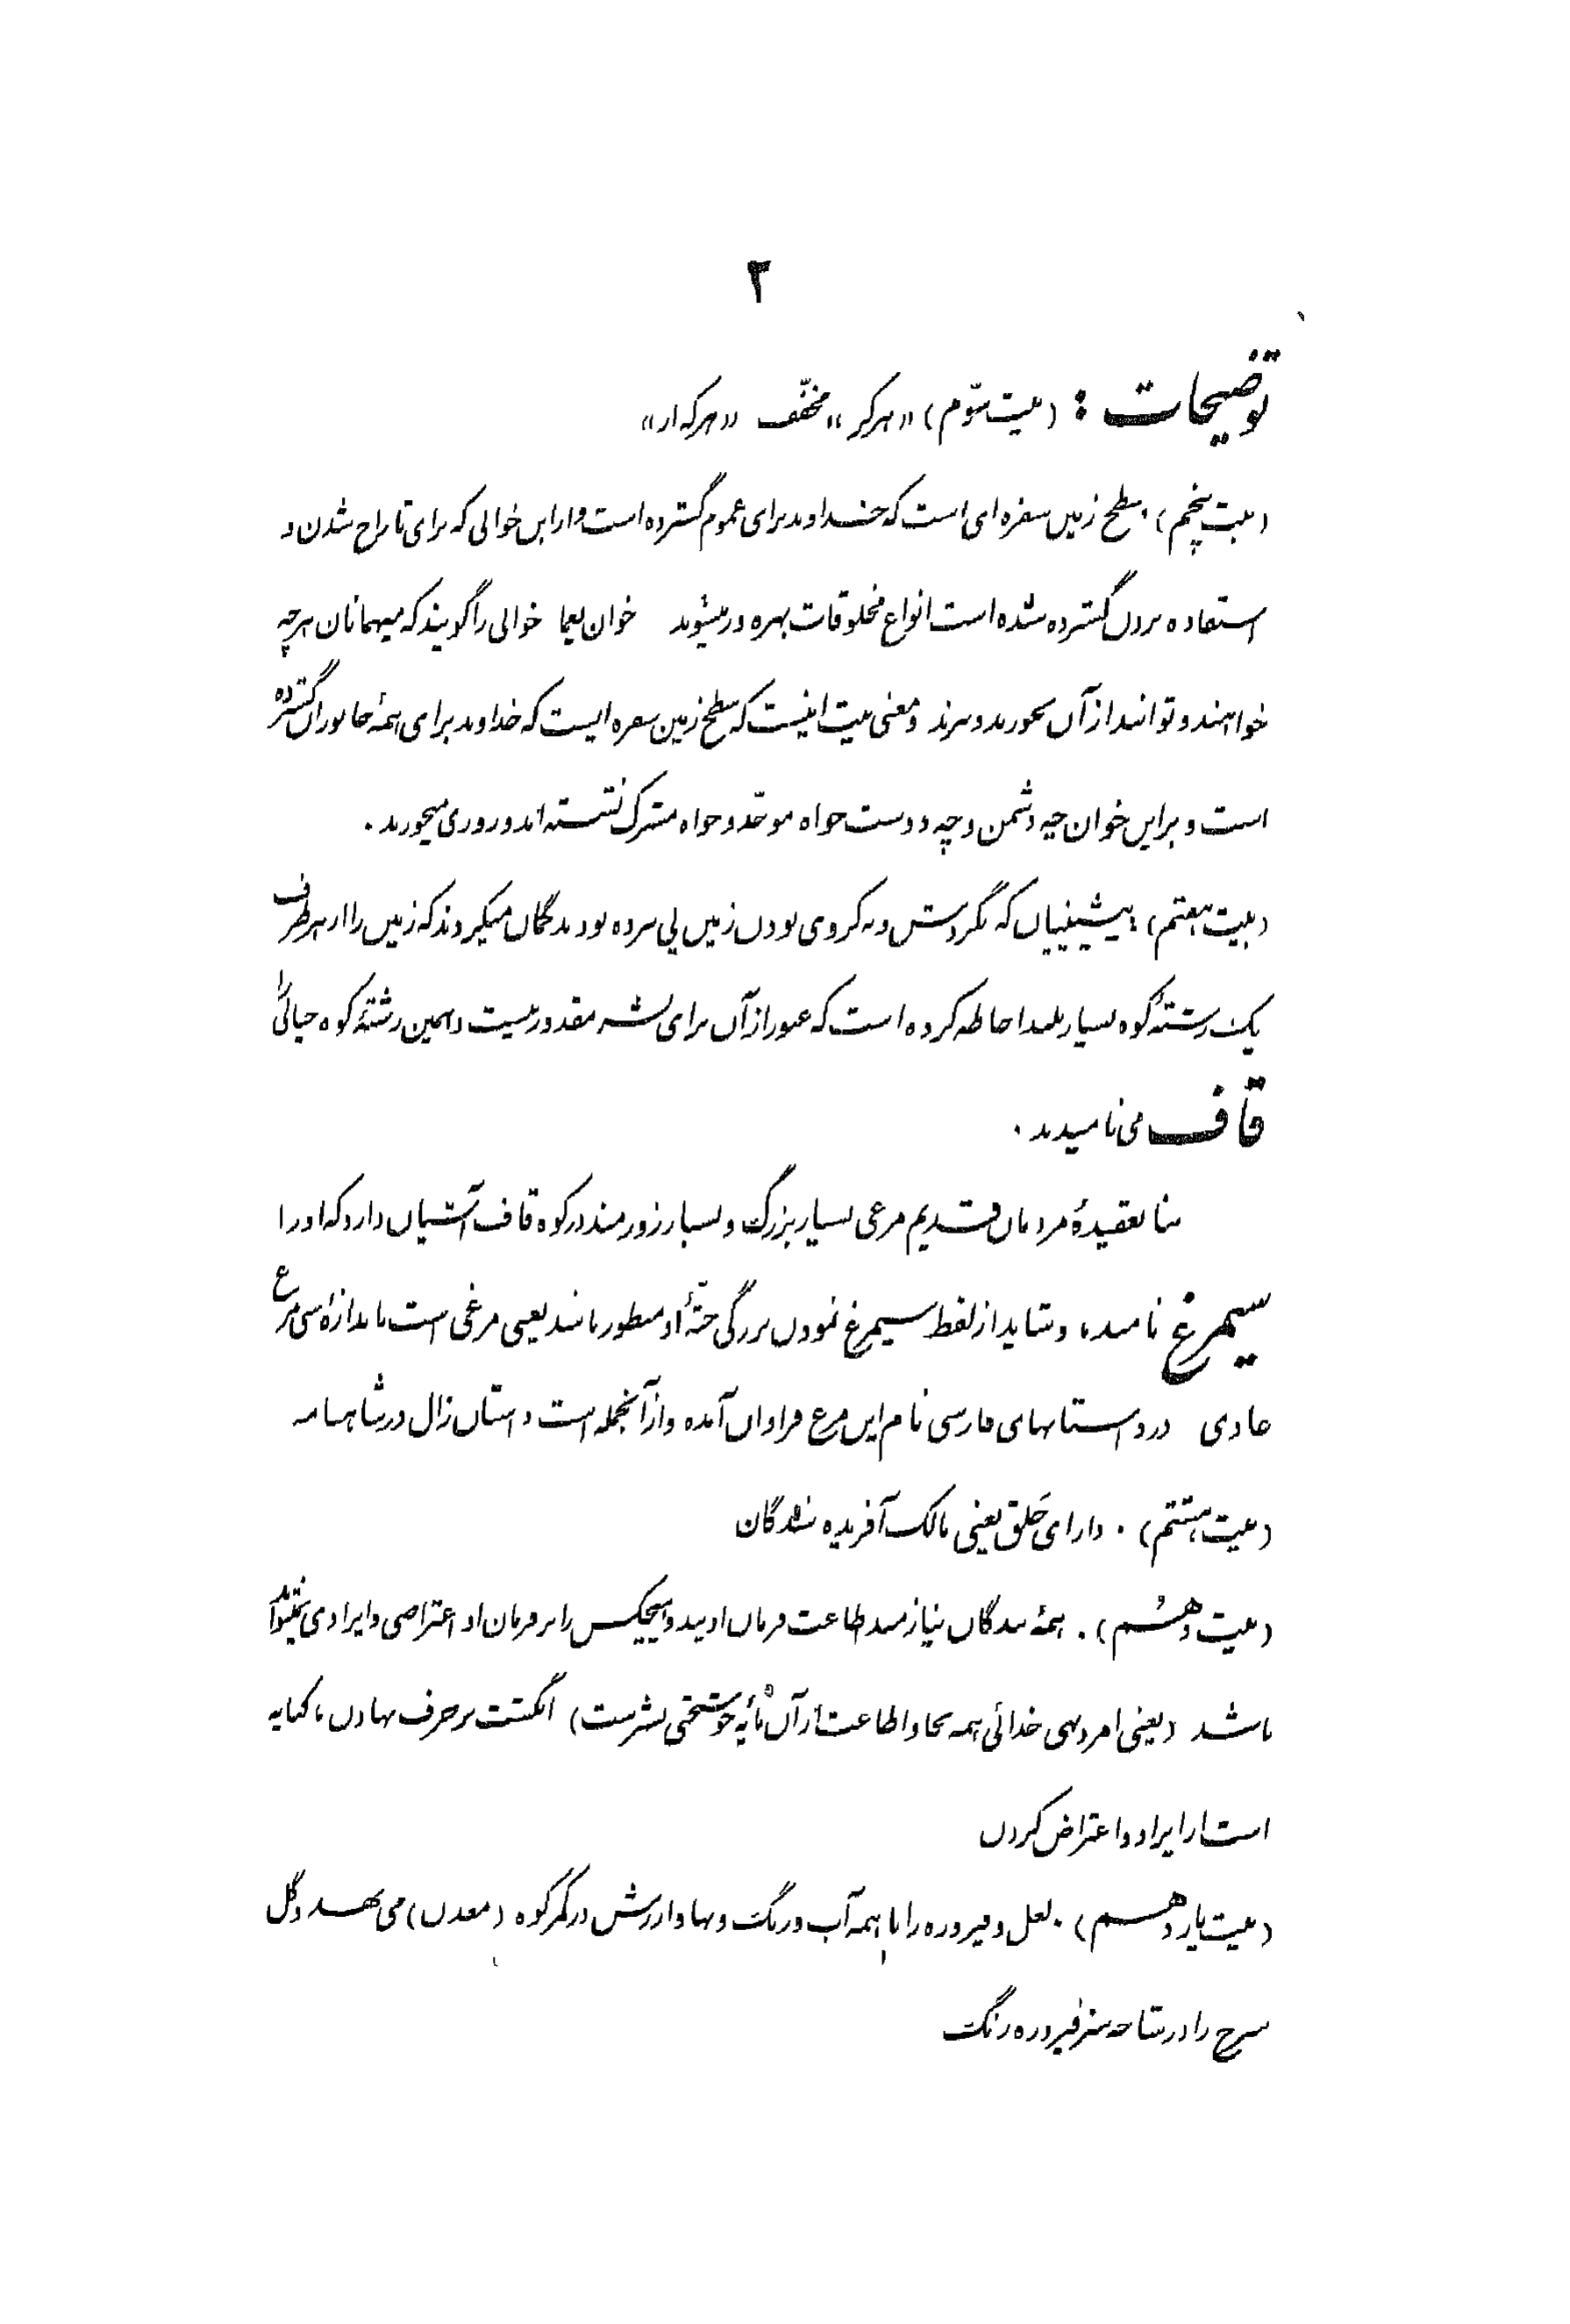 ۲
توضیحات : (بیت سوّم) «هرکز» مخفّف «هرکه از»
(بیت پنجم) . سطح زمین سفره‌ای است که خداوند برای عموم گسترده است و از این خوانی که برای تاراج شدن و
استفاده بردن گسترده شده است انواع مخلوقات بهره ور میشوند خوان یغما خوانی را گویند که میهمانان هرچه
خواهند و توانند از آن بخورند و ببرند و معنی بیت اینست که سطح زمین سفره ایست که خداوند برای همهٔ جانوران گسترده
است و بر این خوان چه دشمن و چه دوست خواه موحّد و خواه مشرک نشسته‌اند و روزی میخورند .
(بیت هفتم) : پیشینیان که بگردش و به کروی بودن زمین پی نبرده بودند گمان میکردند که زمین را از هر طرف
یک رشتهٔ کوه بسیار بلند احاطه کرده است که عبور از آن برای بشر مقدور نیست و همین رشتهٔ کوه خیالی را
قاف می نامیدند .
بنا بعقیدهٔ مردمان قدیم مرغی بسیار بزرگ و بسیار زورمند در کوه قاف آشیان دارد که او را
سیمرغ نامند ، و شاید از لفظ سیمرغ نمودن بزرگی جثّهٔ او منظور باشد یعنی مرغی است باندازهٔ سی مرغ
عادی در داستانهای فارسی نام این مرغ فراوان آمده و از آنجمله است داستان زال در شاهنامه
(بیت هشتم) . دارای خَلق یعنی مالک آفریده شدگان
(بیت دهم) . همهٔ بندگان نیازمند اطاعت فرمان اویند و هیچکس را بر فرمان او اعتراضی و ایرادی نمیتواند
باشد (یعنی امر و نهی خدائی همه بجا و اطاعت از آن مایهٔ خوشبختی بشر است) انگشت بر حرف نهادن ، کنایه
است از ایراد و اعتراض کردن
(بیت یازدهم) . لعل و فیروزه را با همه آب و رنگ و بها و ارزش در کمر کوه (معدن) می نهد و گل
سرخ را در شاخه سبز فیروزه رنگ